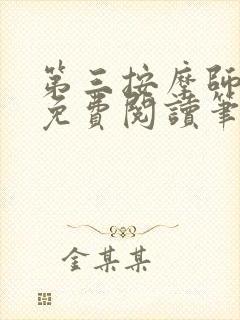 第三按摩師
免費閱讀筆
金某某